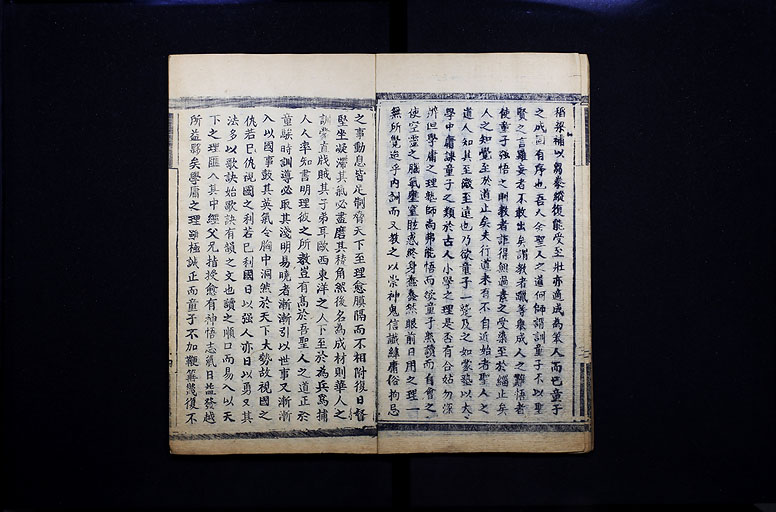 稻粱補以芻豢縱復能受至壯亦適成為笨人而已童子
之成固有序也吾人令聖人之道何師謂訓童子不以聖
賢之言雖妄者不敢出矣謂教者躐等集成人之難悟者
使童子強悟之則教者詎得無過責之受藥至於緬止矣
人之知覺至於道止矣夫行道未有不自近始者聖人之
道人知其至微至道也乃欲童子一覽及之如蒙塾以大
學中庸課童子之類於古人小學之理是否有合姑勿深
辨但學庸之理塾師尚弗能悟而欲童子熟讀而自會之
使空靈之腦氣壅窒眩惑終身蠢蠢然眼前日用之理一
無所覺迨乎內訓而又教之以崇神鬼信讖緯庸俗拘忌
之事動息皆足制齊天下至理愈膜隔而不相附復日督
堅坐凝滯其氣必盡磨其稜角然後名為成材則華人之
訓蒙直戕賊其子弟耳歐西東洋之人下至於為兵為捕
人人率知書明理彼之所教豈有高於吾聖人之道正於
童騃時訓導必取其淺明易曉者漸漸引以世事又漸漸
入以國事鼓其英氣令胸中洞然於天下大勢故視國之
仇若己仇視國之利若己利國日以強人亦日以勇又其
法多以歌訣始歌訣有韻之文也讀之順口而易入以天
下之理匯入其中經父兄指授愈有神悟志氣日益發越
所益夥矣學庸之理雖極誠正而童子不加觀籌幾復不